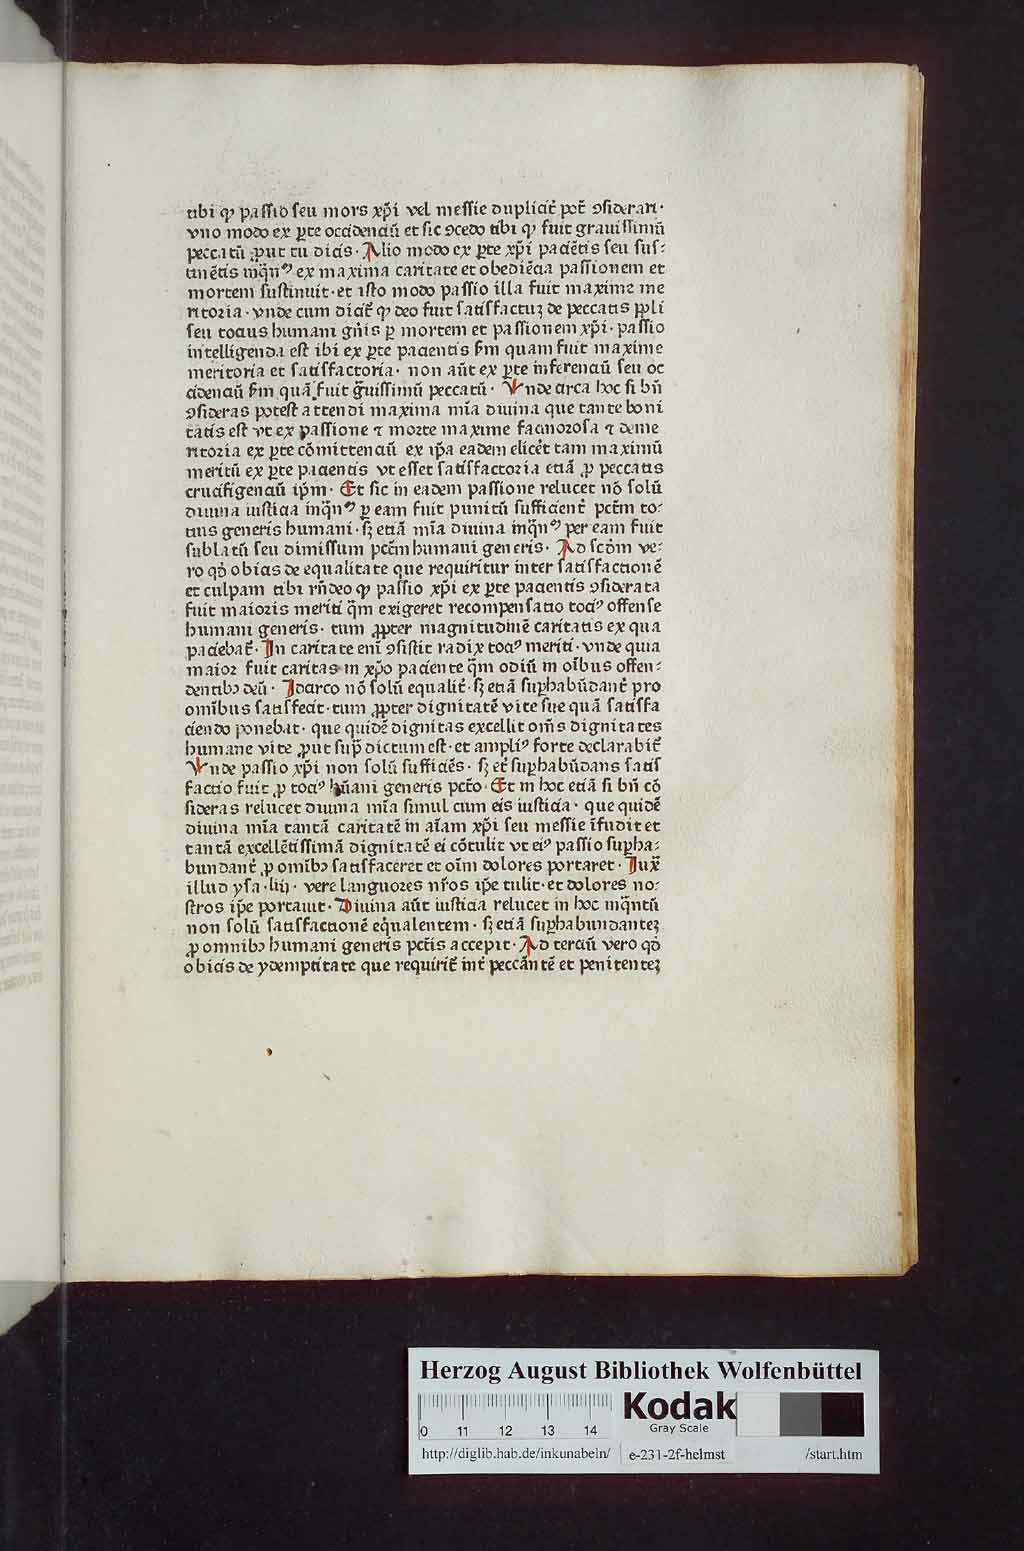 tibi ꝙ passio seu mors xp̄i vel messie duplicit̉ pot̄ ꝯsiderari·
vno modo ex ꝑte occidenciū et sic ꝯcedo tibi ꝙ fuit grauissimū
peccatū ꝓut tu dicis· Alio modo ex ꝑte xp̄i paciētis seu sus⸗
tinētis inq̄nꝰ ex maxima caritate et obediēcia passionem et
mortem sustinuit· et isto modo passio illa fuit maxime me
ritoria· vnde cum dicit̉ ꝙ deo fuit satisfactuꝫ de peccatis pp̄li
seu tocius humani gn̄is ꝑ mortem et passionem xp̄i· passio
intelligenda est ibi ex ꝑte pacientis ẜm quam fuit maxime
meritoria et satisfactoria· non aūt ex ꝑte inferenciū seu oc
cidenciū ẜm quā fuit g̃uissimū peccatū· Vnde circa hoc si bn̄
ꝯsideras potest attendi maxima mīa diuina que tante boni
tatis est vt ex passione ⁊ morte maxime facinorosa ⁊ deme
ritoria ex ꝑte cōmittenciū ex ip̄a eadem elicet̉ tam maximū
meritū ex ꝑte pacientis vt esset satisfactoria etiā ꝓ peccatis
crucifigenciū ip̄m· Et sic in eadem passione relucet nō solū
diuina iusticia inq̄nꝰ ꝑ eam fuit punitū sufficient̉ pctm̄ to⸗
tius generis humani· sꝫ etiā mīa diuina inq̄nꝰ per eam fuit
sublatū seu dimissum pctm̄ humani generis· Ad scdm̄ ve⸗
ro qd̄ obicias de equalitate que requiritur inter satisfactionē
et culpam tibi rn̄deo ꝙ passio xp̄i ex ꝑte pacientis ꝯsiderata
fuit maioris meriti q̄m exigeret recompensatio tociꝰ offense
humani generis· tum ꝓpter magnitudinē caritatis ex qua
paciebat̉· In caritate enī ꝯsistit radix tociꝰ meriti· vnde quia
maior fuit caritas in xp̄o paciente q̄m odiū in oībus offen⸗
dentibꝫ deū· Idcirco nō solū equalit̉· sꝫ etiā suꝑhabūdant̉ pro
omībus satisfecit· tum ꝓpter dignitatē vite sue quā satisfa
ciendo ponebat· que quidē dignitas excellit om̄s dignitates
humane vite ꝓut sup̄ dictum est· et ampliꝰ forte declarabit̉
Vnde passio xp̄i non solū sufficiēs· sꝫ et̄ suꝑhabūdans satis
factio fuit ꝓ tociꝰ hūani generis pctō· Et in hoc etiā si bn̄ cō
sideras relucet diuina mīa simul cum eis iusticia· que quidē
diuina mīa tantā caritatē in aīam xp̄i seu messie īfudit et
tantā excellētissimā dignitatē ei cōtulit vt eiꝰ passio suꝑha⸗
bundant̉ ꝓ omībꝫ satisfaceret et oīm dolores portaret· Iux̄
illud ysa·liij· vere languores nr̄os ip̄e tulit· et dolores no⸗
stros ip̄e portauit· Diuina aūt iusticia relucet in hoc inq̄ntū
non solū satisfactionē eq̄ualentem· sꝫ etiā suꝑhabundanteꝫ
ꝓ omnibꝫ humani generis pctīs accepit· Ad terciū vero qd̄
obicis de ydemptitate que requirit̉ int̉ peccāntē et penitenteꝫ
Herzog August Bibliothek Wolfenbüttel
Kodak
Gray Scale
0 11 12 13 14
http://diglib.hab.de/inkunabeln/ e-231-2f-helmst /start.htm